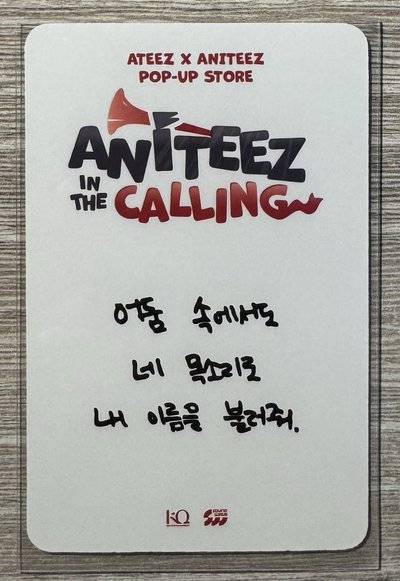 ATEEZ X ANITEEZ
POP-UP STORE
ANITEEZ
IN THE CALLING
어둠 속에서도
네 목소리로
내 이름을 불러줘.
KQ